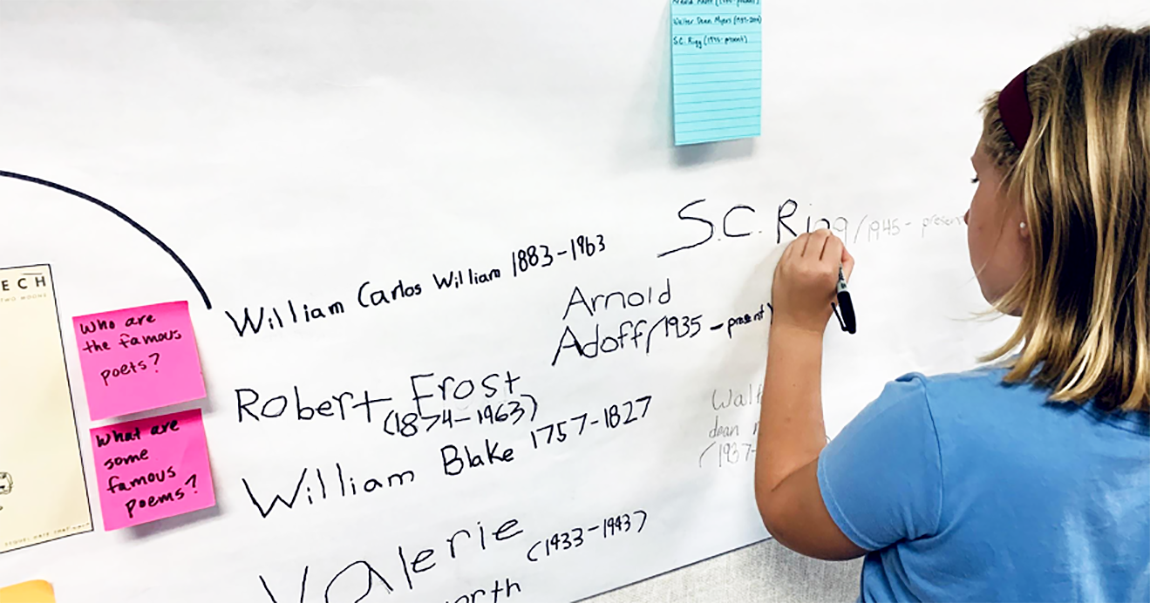 Walter Dean Myers (1937-2014)
S.C. Rigg (1945-present)
S.C. Rigg (1945- present
William Carlos William 1883-1963
Arnold
Adoff (1935 - present)
ECH
TWO MOONS
Who are
the famous
poets?
Robert Frost
(1874-1963)
What are
some
famous
poems?
William Blake 1757-1827
Walt
dean
(1937-
Valerie
(1933-1943)
orth